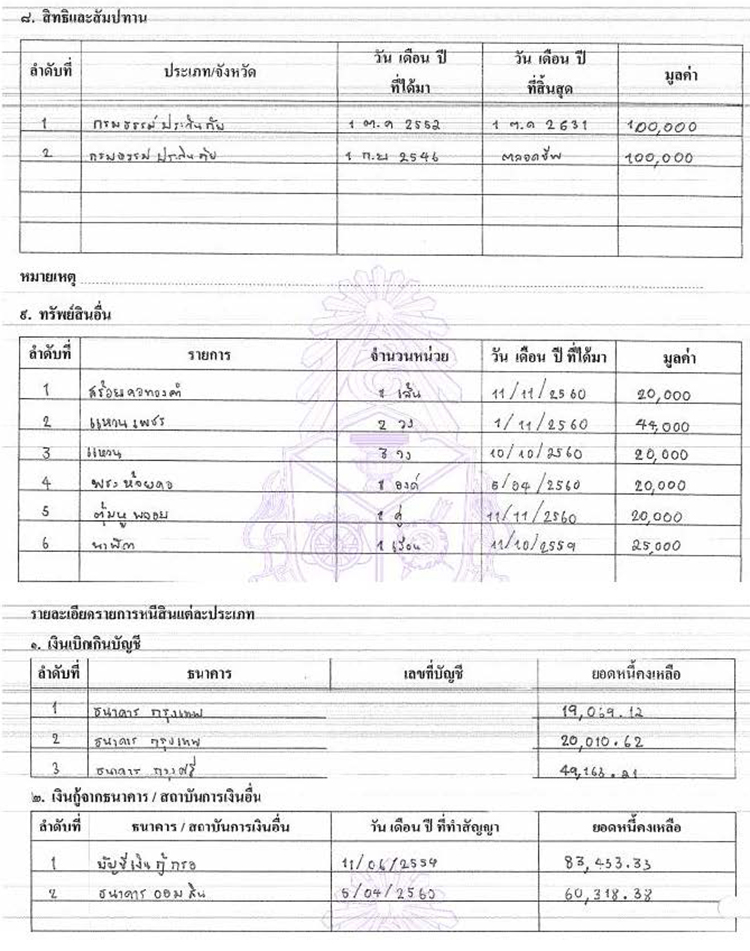 ๘. สิทธิและสัมปทาน
ลำดับที่ ประเภท/จังหวัด วัน เดือน ปี ที่ได้มา วัน เดือน ปี ที่สิ้นสุด มูลค่า
1 กรมธรรม์ ประกันภัย 1 ต.ค 2552 1 ต.ค 2631 100,000
2 กรมธรรม์ ประกันภัย 1 ก.ย 2546 ตลอดชีพ 100,000
หมายเหตุ
๙. ทรัพย์สินอื่น
ลำดับที่ รายการ จำนวนหน่วย วัน เดือน ปี ที่ได้มา มูลค่า
1 สร้อยคอทองคำ 1 เส้น 11/11/2560 20,000
2 แหวนเพชร 2 วง 1/11/2560 44,000
3 แหวน 3 วง 10/10/2560 20,000
4 พระห้อยคอ 1 องค์ 5/04/2560 20,000
5 ตุ้มหู พลอย 1 คู่ 11/11/2560 20,000
6 นาฬิกา 1 เรือน 11/10/2559 25,000
รายละเอียดรายการหนี้สินแต่ละประเภท
๑. เงินเบิกเกินบัญชี
ลำดับที่ ธนาคาร เลขที่บัญชี ยอดหนี้คงเหลือ
1 ธนาคาร กรุงเทพ 19,069.12
2 ธนาคาร กรุงเทพ 20,010.62
3 ธนาคาร กรุงศรี 49,163.21
๒. เงินกู้จากธนาคาร / สถาบันการเงินอื่น
ลำดับที่ ธนาคาร / สถาบันการเงินอื่น วัน เดือน ปี ที่ทำสัญญา ยอดหนี้คงเหลือ
1 บัญชีเงินกู้ กรอ 11/06/2554 83,453.33
2 ธนาคาร ออมสิน 5/04/2560 60,318.38